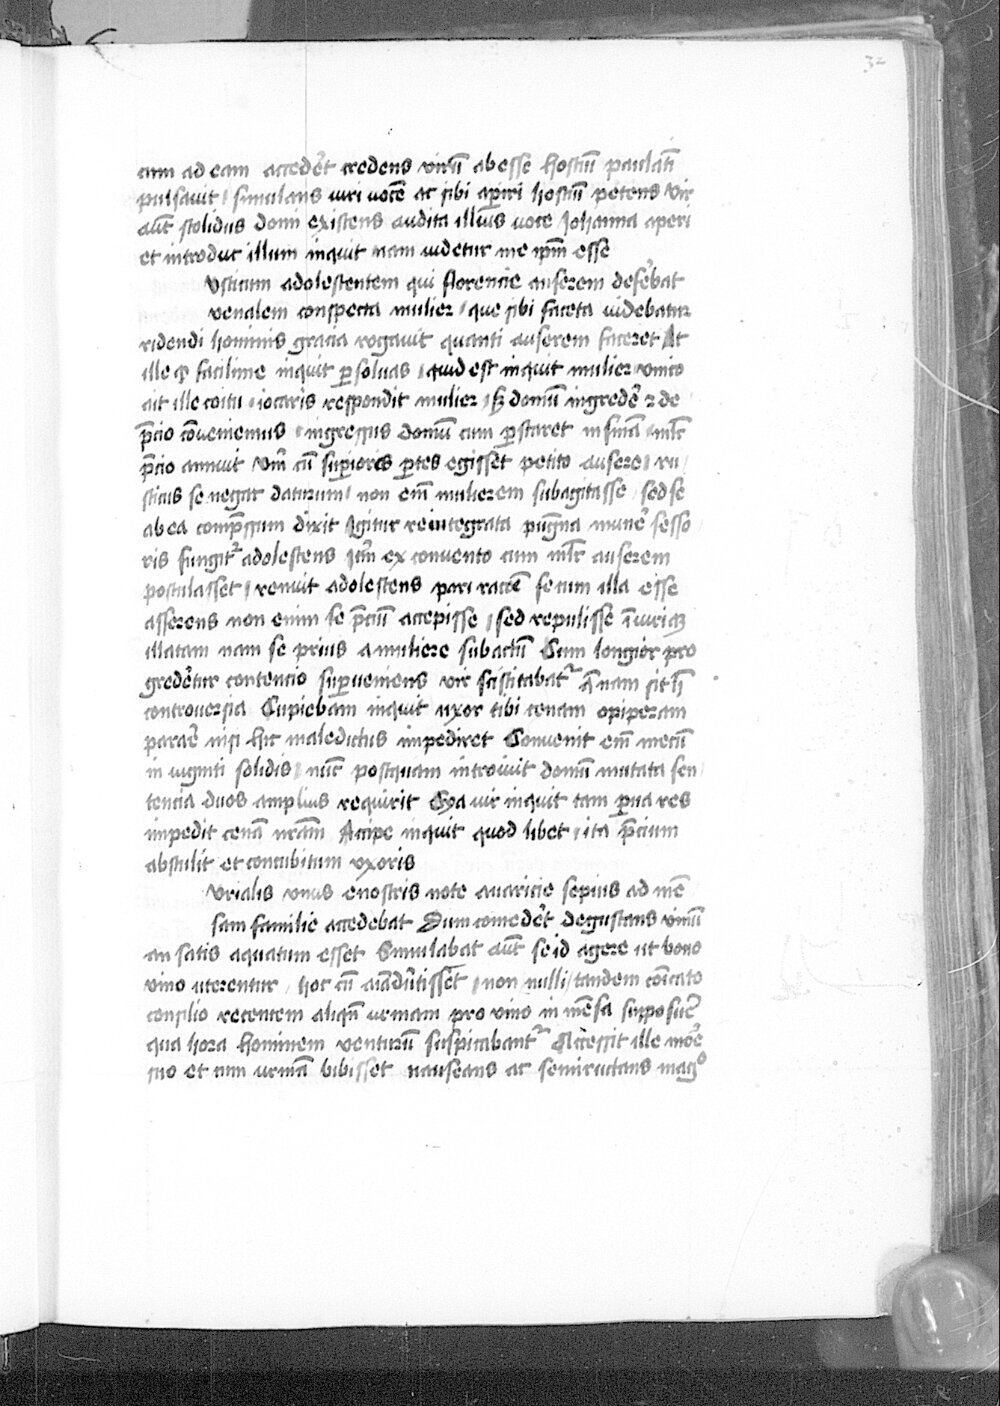 32
cum ad eam accedēt credens virū abesse hostiū paulatī
pulsavit / simulans viri vocē ac sibi apiri hostiū petens vir
aūt stolidus domi existens audita illius voce Johanna aperi
et introduc illum inquit nam videtur me ipm̄ esse
Vsticum adolescentem qui florencie anserem defēbat
venalem conspecta mulier / que sibi faceta videbatur
ridendi hominis gracia rogavit quanti anserem faceret At
ille qͥ facilime inquit p̲solvas / quid est inquit mulier / vnico
ait ille coitu / iocaris respondit mulier / sꝫ domū ingredē ⁊ de
p̄cio cōveniemus / ingressus domū cum p̲staret in snīa / mlr̄
p̄cio annuit Vm̄ cū superiores p̲tes egisset petito ansere / ru/
sticus se negat daturum / non em̄ mulierem subagitasse / sed se
ab ea comp̄ssum dixit Igitur reintegrata pug̅na munē sesso/
ris fungitᷣ adolescens Itm̄ ex convento cum mlr̄ anserem
postulasset / renuit adolescens pari rac̄oē secum illa esse
asserens non enim se p̄ciū accepisse / sed repulisse iniuriaꝫ
illatam nam se prius a muliere subactū Cum longior pro
gredētur contencio sup̲veniens vir sciscitabatᷣ q̄nam sit h̄
controversia Cupiebam inquit uxor tibi cenam opiperam
pararē nisi hic maledictus impediret Convenit em̄ mecū
in viginti solidis / nūc postquam introivit domū mutata sen/
tencia duos amplius requirit Eya vir inquit tam p̲va res
impedit cenā nr̄am Accipe inquit quod libet / ita p̄cium
abstulit et concubitum vxoris
Vrialis vnus e nostris note avaricie sepius ad mē
sam familie accedebat Dum comedēt degustans vinū
an satis aquatum esset Simulabat aūt se id agere ut bono
vino uterentur / hoc cū aīadv̄tisset / non nulli / tandem cōicato
consilio recentem aliqn̄ urinam pro vino in mēsa supposuēr
qua hora hominem venturū suspicabantᷣ Accessit ille morē
suo et cum urinā bibisset nauseans ac semiructans magº